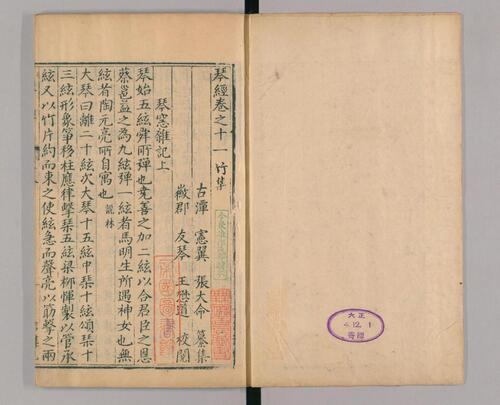 琴經卷之十一 竹集
古潭 憲翼 張大命 纂集
徽郡 友琴 王懋道 校閱
琴窓雜記上
琴始五絃舜所彈也堯善之加二絃以合君臣之恩
蔡邕益之為九絃彈一絃者馬明生所遇神女也無
絃者陶元亮所自寓也 說林
大琴曰離二十絃次大琴十五絃中琴十絃頌琴十
三絃形象箏移柱應律擊琴五絃梁柳惲製以管承
絃又以竹片約而束之使絃急而聲亮以筋擊之兩
大正
4.12.1
寄贈